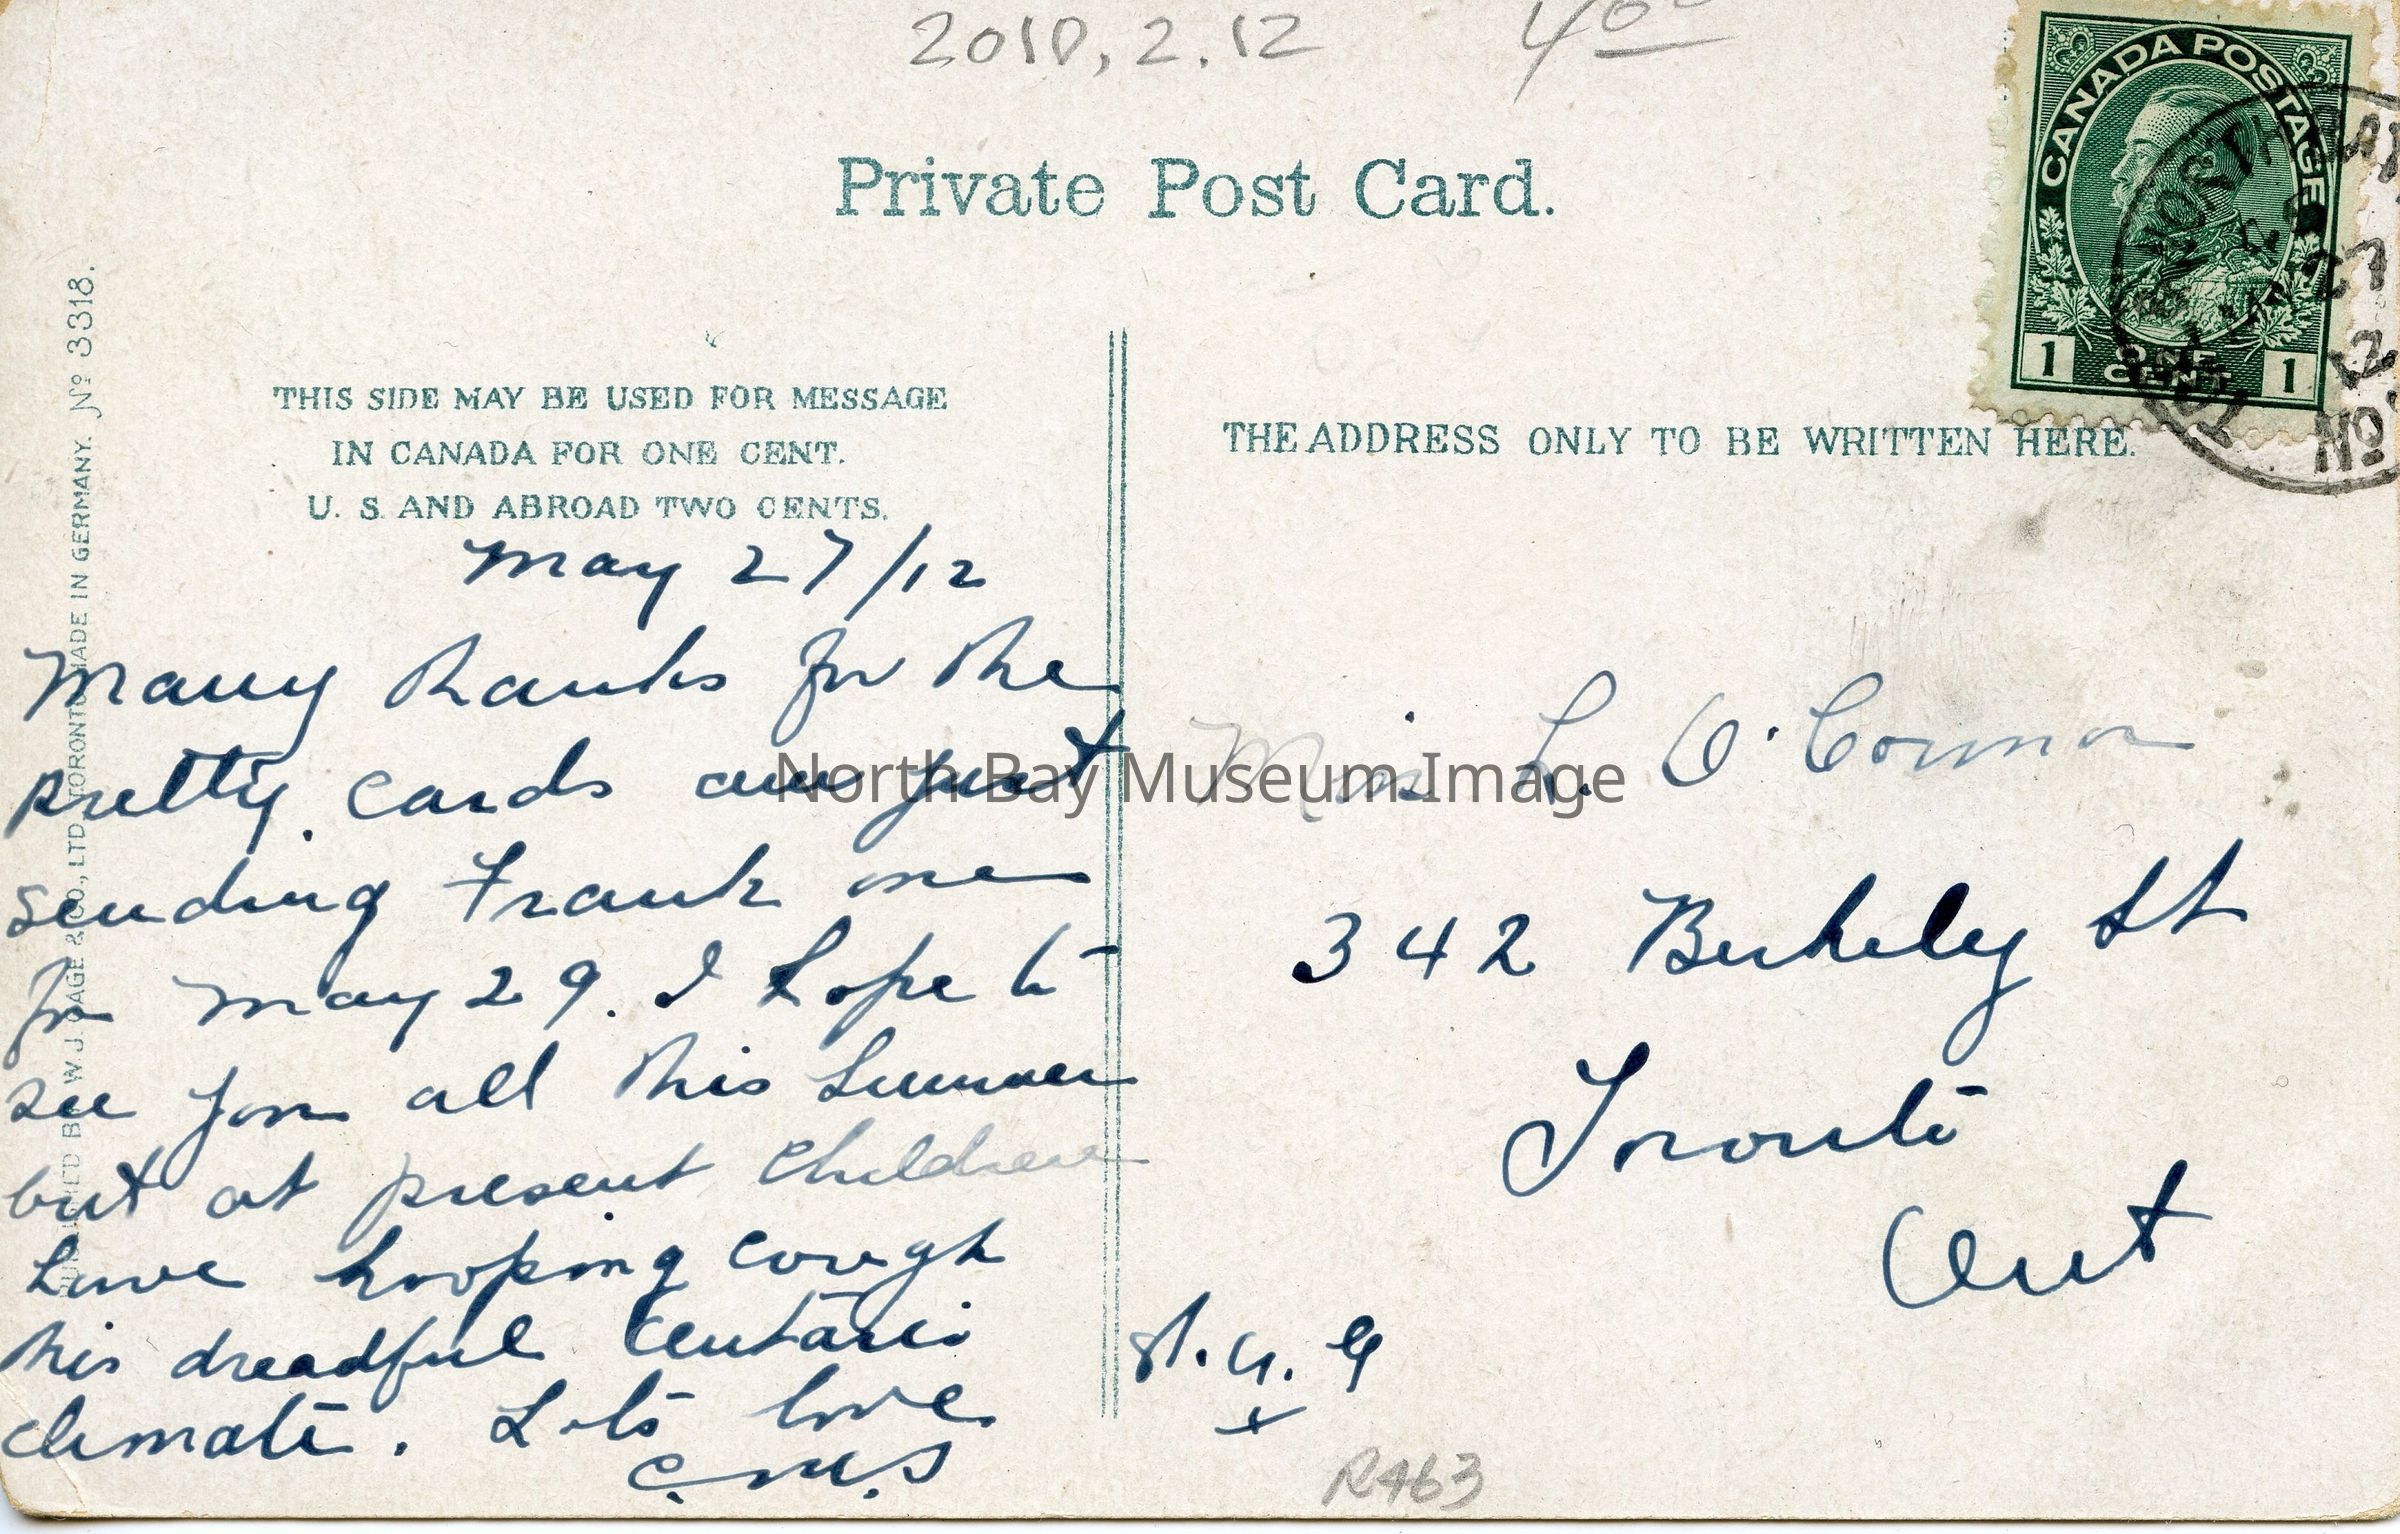 2010.2.12
4.00
Private Post Card.
CANADA POSTAGE
1 ONE CENT 1
27
12
THIS SIDE MAY BE USED FOR MESSAGE
IN CANADA FOR ONE CENT.
U. S. AND ABROAD TWO CENTS.
THE ADDRESS ONLY TO BE WRITTEN HERE.
W. J. GAGE & CO., LTD., TORONTO. MADE IN GERMANY. No 3318.
May 27/12
Many thanks for the
pretty cards am just
sending Frank one
for May 29. I hope to
see you all this summer
but at present children
have hooping cough
this dreadful Ontario
climate. Lots love
C.M.S
Miss L. O'Connor
342 Berkeley St
Toronto
Ont
R463
North Bay Museum Image